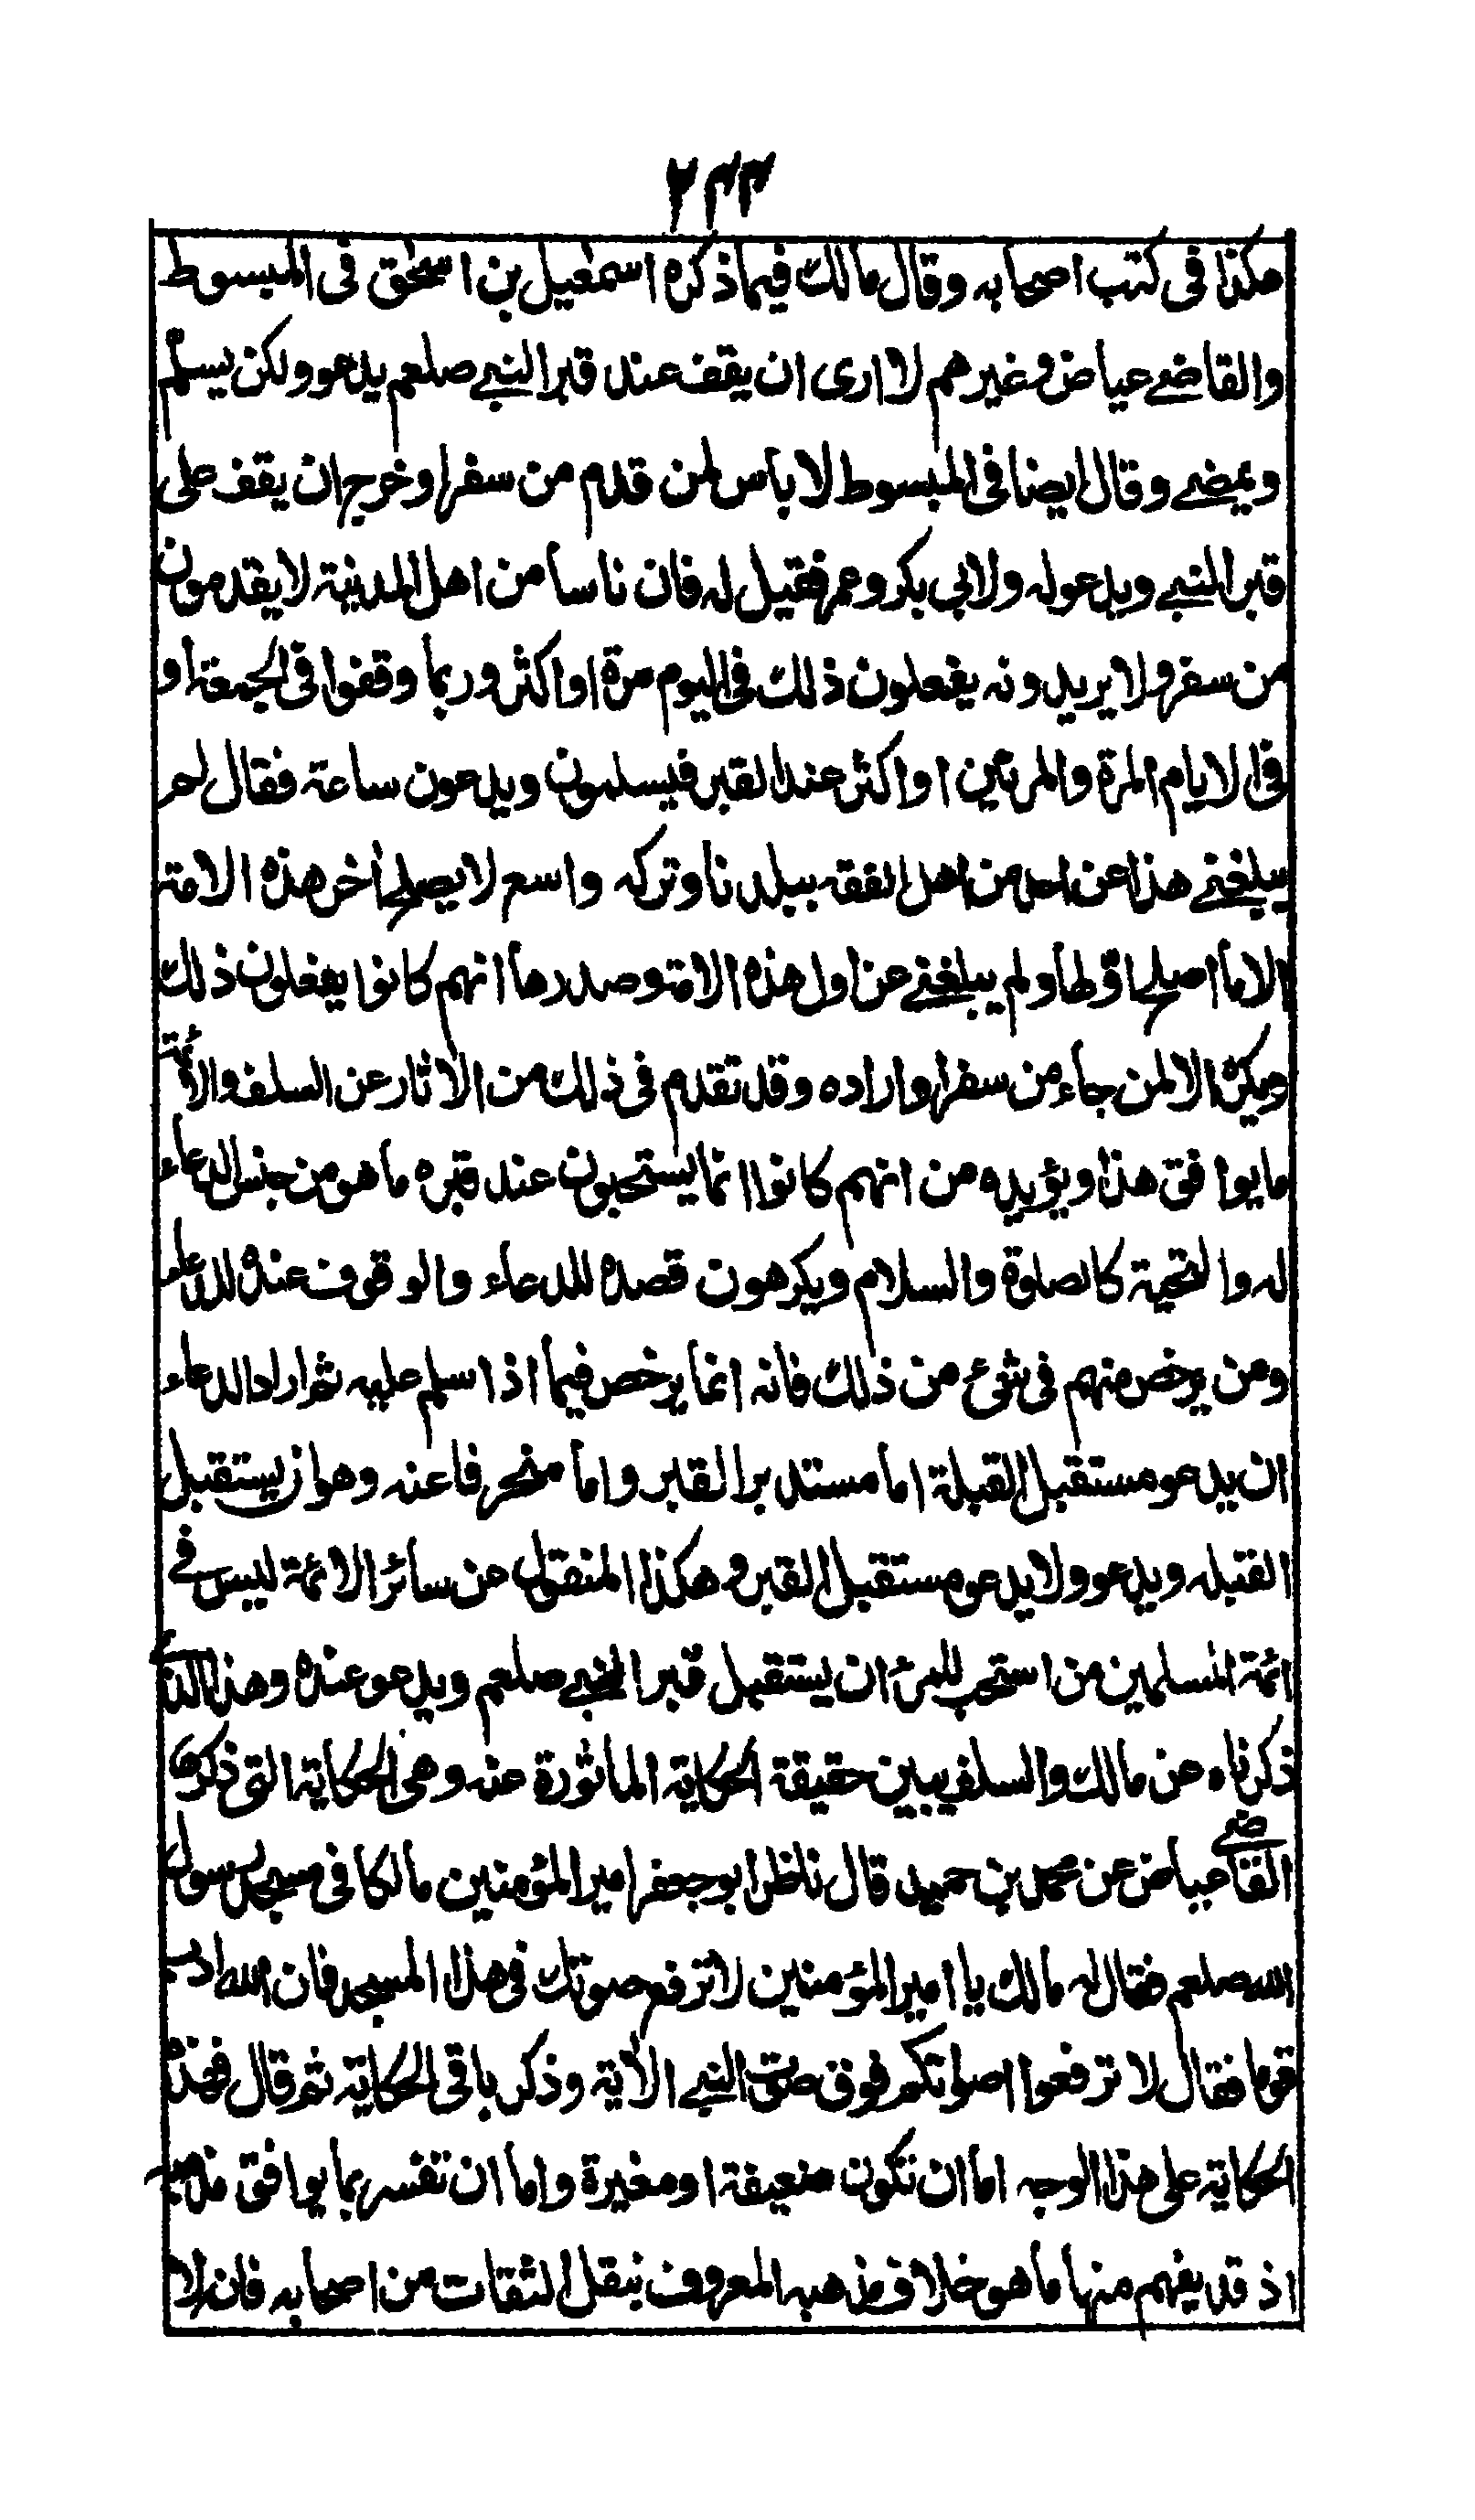 ٢٣٣
هكذا فى كتب اصحابه وقال مالك فيما ذكره اسمعيل بن اسحق فى المبسوط
والقاضے عياض وغيرهم لا ارى ان يقف عند قبر النبے صلعم يدعو ولكن يسلم
ويمضے وقال ايضا فى المبسوط لا باس لمن قدم من سفر او خرج ان يقف على
قبر النبے ويدعو له ولابى بكر وعمر فقيل له فان ناسا من اهل المدينة لا يقدمون
من سفر ولا يريدونه يفعلون ذلك فى اليوم مرة او اكثر وربما وقفوا فى الجمعة او
فى الايام المرة والمرتين او اكثر عند القبر فيسلمون ويدعون ساعة فقال لم
يبلغنے هذا عن احد من اهل الفقه ببلدنا وتركه واسع لا يصلح أخر هذه الامة
الا ما اصلح اولها ولم يبلغنے عن اول هذه الامة وصدرها انهم كانوا يفعلون ذلك
ويكره الا لمن جاء من سفر او اراده وقد تقدم فى ذلك من الاثار عن السلف والائمة
ما يوافق هذا ويؤيده من انهم كانوا انما يستحبون عند قبره ما هو من جنس الدعاء
له والتحية كالصلوة والسلام ويكرهون قصده للدعاء والوقوف عنده للدعاء
ومن يرخص منهم فى شئ من ذلك فانه انما يرخص فيما اذا سلم عليه ثم اراد الدعاء
ان يدعو مستقبل القبلة اما مستدبر القبر واما منحرفا عنه وهو ان يستقبل
القبله ويدعو ولا يدعو مستقبل القبر وهكذا المنقول عن سائر الائمة ليس فے
ائمة المسلمين من استحب للمرئ ان يستقبل قبر النبے صلعم ويدعو عنده وهذا الذى
ذكرناه عن مالك والسلف يبين حقيقة الحكاية الماثورة عنه وهى الحكاية التى ذكرها
القاضے عياض عن محمد بن حميد قال ناظر ابو جعفر امير المؤمنين مالكا فى مسجد رسول
الله صلعم فقال له مالك يا امير المؤمنين لا ترفع صوتك فى هذا المسجد فان الله ادب
قوما فقال لا ترفعوا اصواتكم فوق صوت النبے الأية وذكر باقى الحكاية ثم قال فهذه
الحكاية على هذا الوجه اما ان تكون ضعيفة او مغيرة واما ان تفسر بما يوافق مذهبه
اذ قد يفهم منها ما هو خلاف مذهبه المعروف بنقل الثقات من اصحابه فانه لا